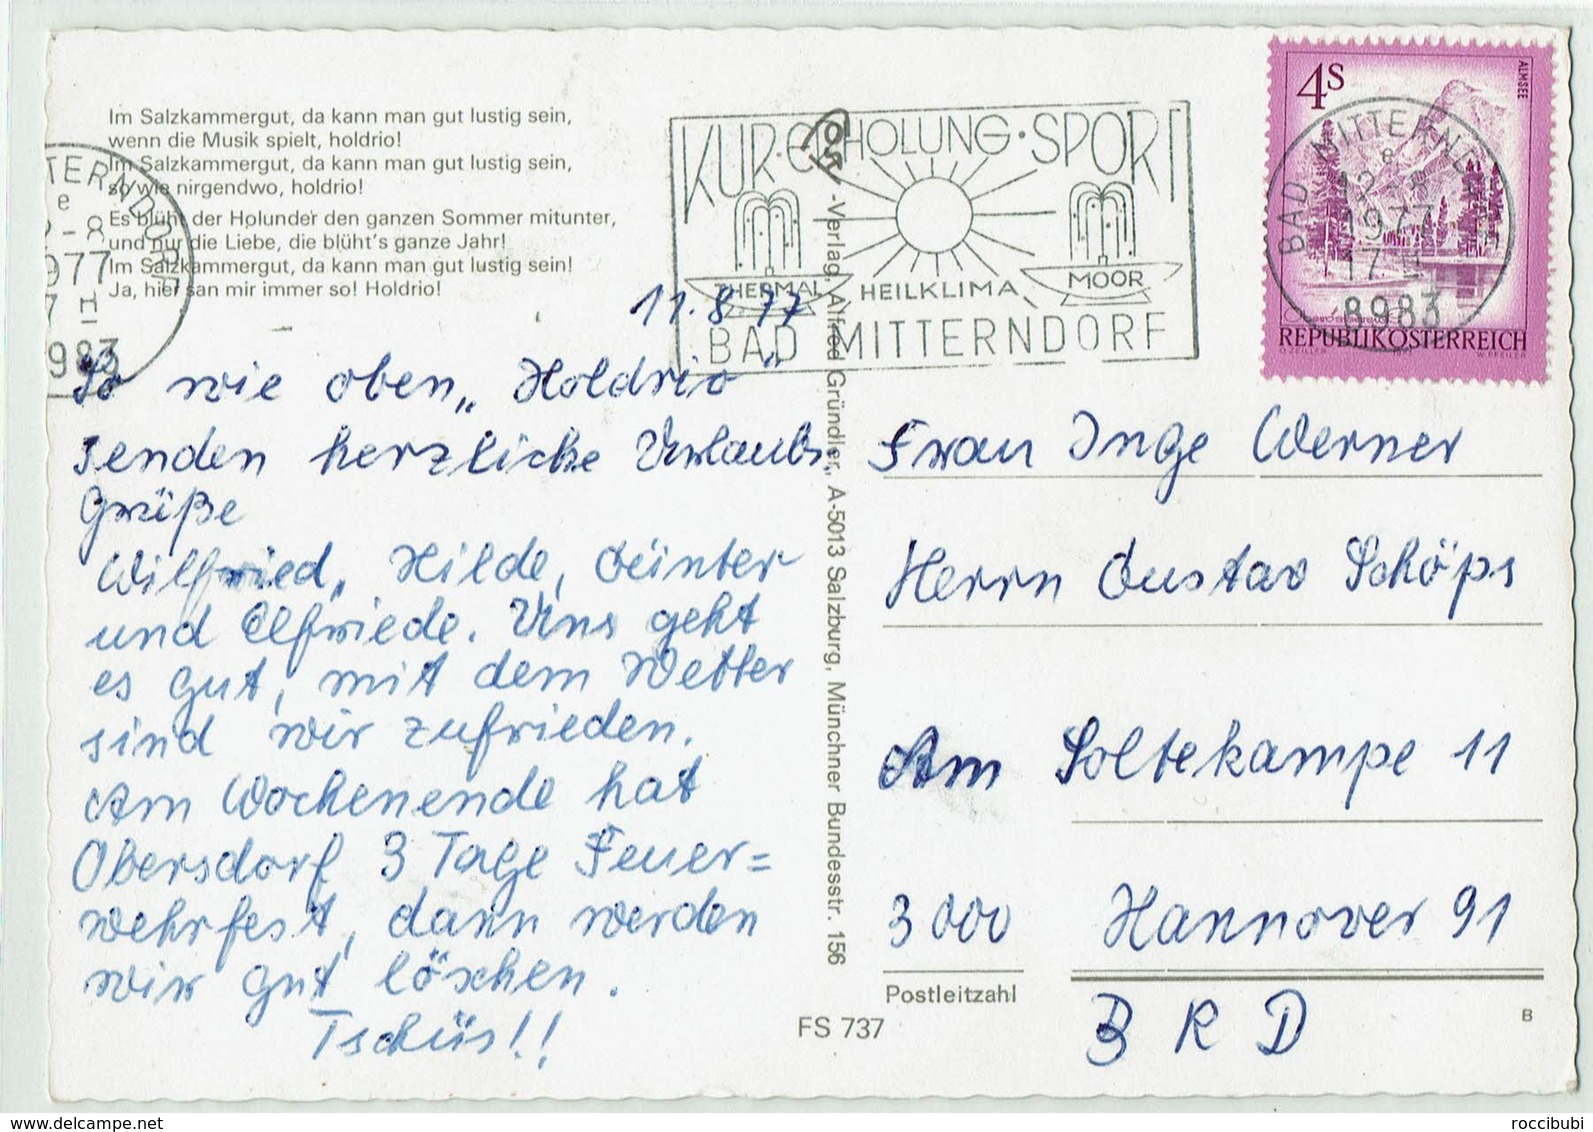 Im Salzkammergut, da kann man gut lustig sein,
wenn die Musik spielt, holdrio!
Im Salzkammergut, da kann man gut lustig sein,
so wie nirgendwo, holdrio!
Es blüht der Holunder den ganzen Sommer mitunter,
und nur die Liebe, die blüht's ganze Jahr!
Im Salzkammergut, da kann man gut lustig sein!
Ja, hier san mir immer so! Holdrio!
11.8.77
So wie oben „Holdrio"
senden herzliche Urlaubs-
Grüße
Wilfried, Hilde, Günter
und Elfriede. Uns geht
es gut, mit dem Wetter
sind wir zufrieden.
Am Wochenende hat
Obersdorf 3 Tage Feuer=
wehrfest, dann werden
wir gut löschen.
Tschüs!!
KUR·ERHOLUNG·SPORT
THERMAL HEILKLIMA MOOR
BAD MITTERNDORF
4S
ALMSEE
REPUBLIK ÖSTERREICH
O. ZEILLER W. PFEILER
BAD MITTERNDORF
e
12.-8
1977
17 H
8983
TERNDORF
e
2-8
977
7 H
983
-Verlag, Alfred Gründler, A-5013 Salzburg, Münchner Bundesstr. 156
Frau Inge Werner
Herrn Gustav Schöps
Am Soltekampe 11
3000 Hannover 91
Postleitzahl
B R D
FS 737
B
delcampe.net
roccibubi